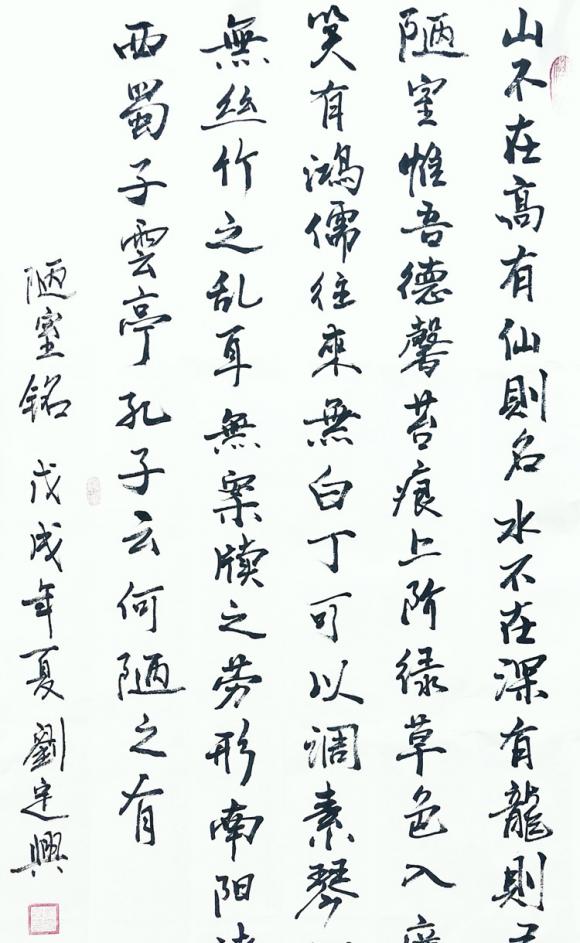 山不在高有仙則名水不在深有龍則
陋室惟吾德馨苔痕上阶绿草色入
笑有鴻儒往來無白丁可以调素琴
無絲竹之乱耳無案牍之劳形南阳
西蜀子雲亭孔子云何陋之有
陋室铭 戊戌年夏劉定興